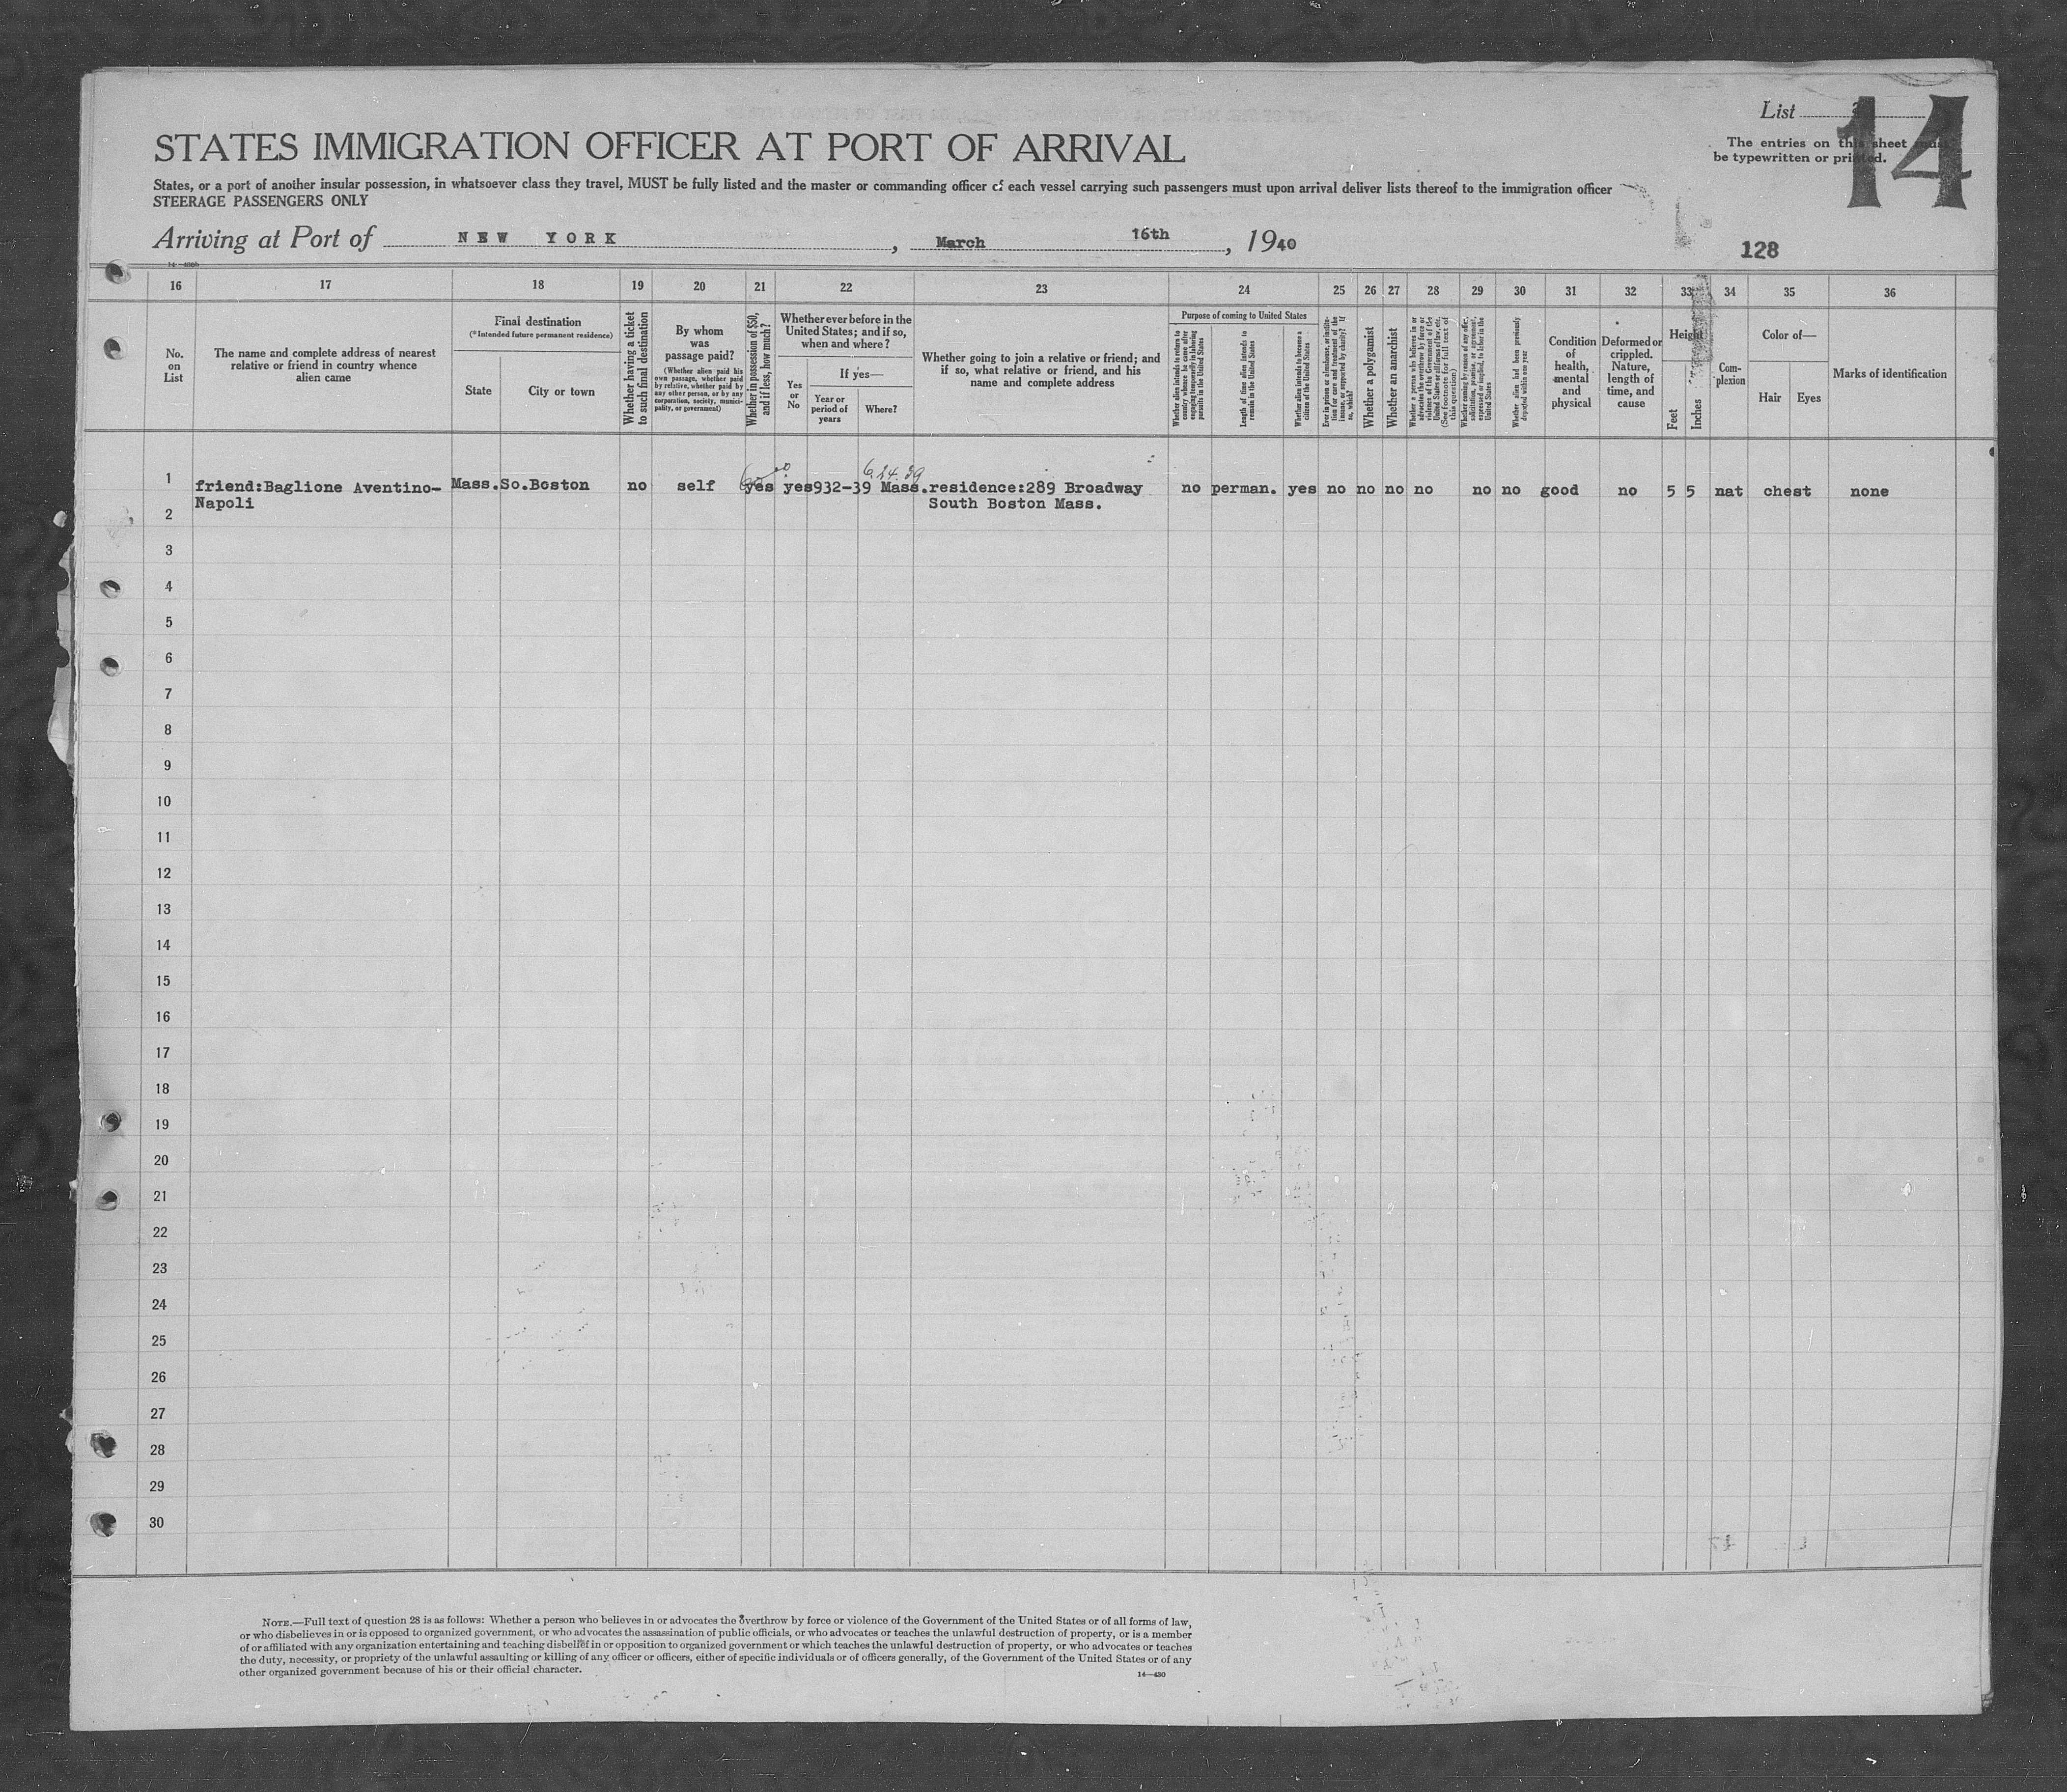 List
14
The entries on this sheet must
be typewritten or printed.
STATES IMMIGRATION OFFICER AT PORT OF ARRIVAL
States, or a port of another insular possession, in whatsoever class they travel, MUST be fully listed and the master or commanding officer of each vessel carrying such passengers must upon arrival deliver lists thereof to the immigration officer
STEERAGE PASSENGERS ONLY
Arriving at Port of NEW YORK, March 16th, 1940
128
16 17 18 19 20 21 22 23 24 25 26 27 28 29 30 31 32 33 34 35 36
No.
on
List
The name and complete address of nearest
relative or friend in country whence
alien came
Final destination
(*Intended future permanent residence)
State
City or town
Whether having a ticket
to such final destination
By whom
was
passage paid?
(Whether alien paid his
own passage, whether paid
by relative, whether paid by
any other person, or by any
corporation, society, munici-
pality, or government)
Whether in possession of $50,
and if less, how much?
Whether ever before in the
United States; and if so,
when and where?
Yes
or
No
If yes—
Year or
period of
years
Where?
Whether going to join a relative or friend; and
if so, what relative or friend, and his
name and complete address
Purpose of coming to United States
Whether alien intends to return to
country whence he came after
engaging temporarily in laboring
pursuits in the United States
Length of time alien intends to
remain in the United States
Whether alien intends to become a
citizen of the United States
Ever in prison or almshouse, or institu-
tion for care and treatment of the
insane, or supported by charity? If
so, which?
Whether a polygamist
Whether an anarchist
Whether a person who believes in or
advocates the overthrow by force or
violence of the Government of the
United States or all forms of law, etc.
(See footnote for full text of
this question)
Whether coming by reason of any offer,
solicitation, promise, or agreement,
expressed or implied, to labor in the
United States
Whether alien had been previously
deported within one year
Condition
of
health,
mental
and
physical
Deformed or
crippled.
Nature,
length of
time, and
cause
Height
Feet
Inches
Com-
plexion
Color of—
Hair
Eyes
Marks of identification
6.24.39
1 friend:Baglione Aventino- Mass. So.Boston no self yes yes 932-39 Mass. residence:289 Broadway no perman. yes no no no no no no good no 5 5 nat chest none
Napoli South Boston Mass.
2
3
4
5
6
7
8
9
10
11
12
13
14
15
16
17
18
19
20
21
22
23
24
25
26
27
28
29
30
NOTE.—Full text of question 28 is as follows: Whether a person who believes in or advocates the overthrow by force or violence of the Government of the United States or of all forms of law,
or who disbelieves in or is opposed to organized government, or who advocates the assassination of public officials, or who advocates or teaches the unlawful destruction of property, or is a member
of or affiliated with any organization entertaining and teaching disbelief in or opposition to organized government or which teaches the unlawful destruction of property, or who advocates or teaches
the duty, necessity, or propriety of the unlawful assaulting or killing of any officer or officers, either of specific individuals or of officers generally, of the Government of the United States or of any
other organized government because of his or their official character.
14—430